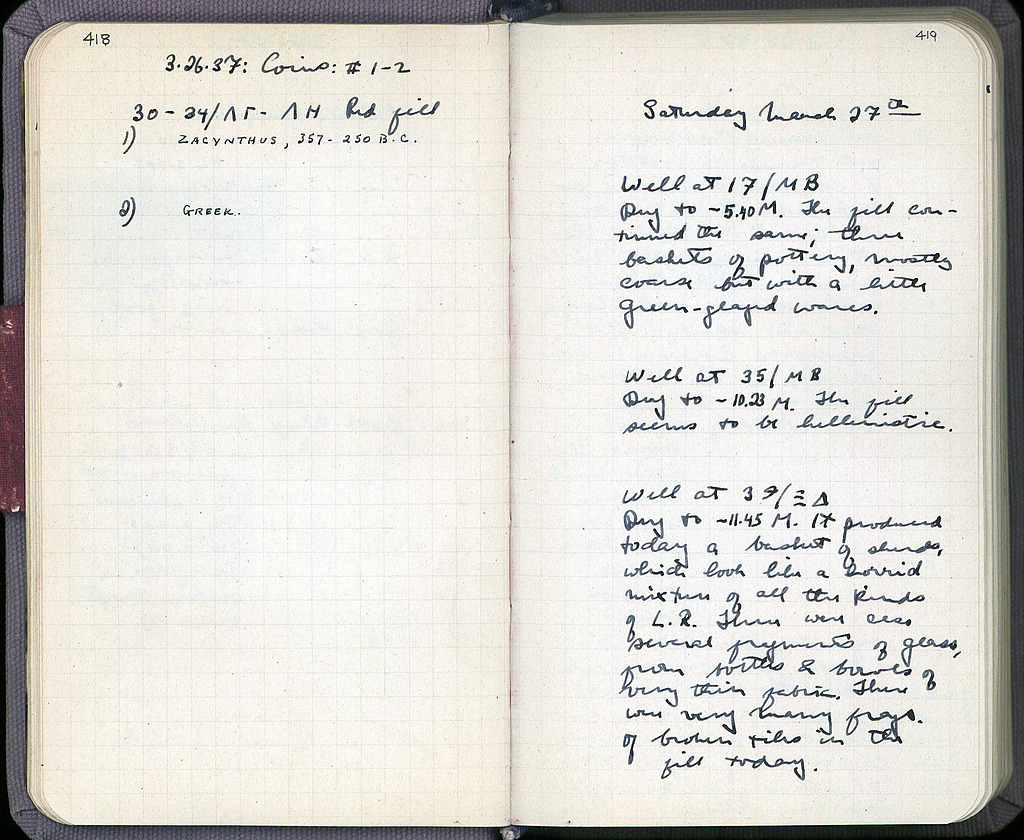 418
3·26·37: Coins: # 1-2
30-34/ΛΓ- ΛΗ Red fill
1) ZACYNTHUS, 357-250 B.C.
2) GREEK.
419
Saturday March 27th
Well at 17/ΜΒ
Dug to -5.40 M. The fill con-
tinued the same; three
baskets of pottery, mostly
coarse but with a little
green-glazed wares.
Well at 35/ΜΒ
Dug to -10.23 M. The fill
seems to be hellenistic.
Well at 39/ΞΔ
Dug to -11.45 M. It produced
today a basket of sherds,
which look like a horrid
mixture of all the kinds
of L.R. There were also
several fragments of glass,
from bottles & bowls of
very thin fabric. There
were very many frags.
of broken tiles in the
fill today.